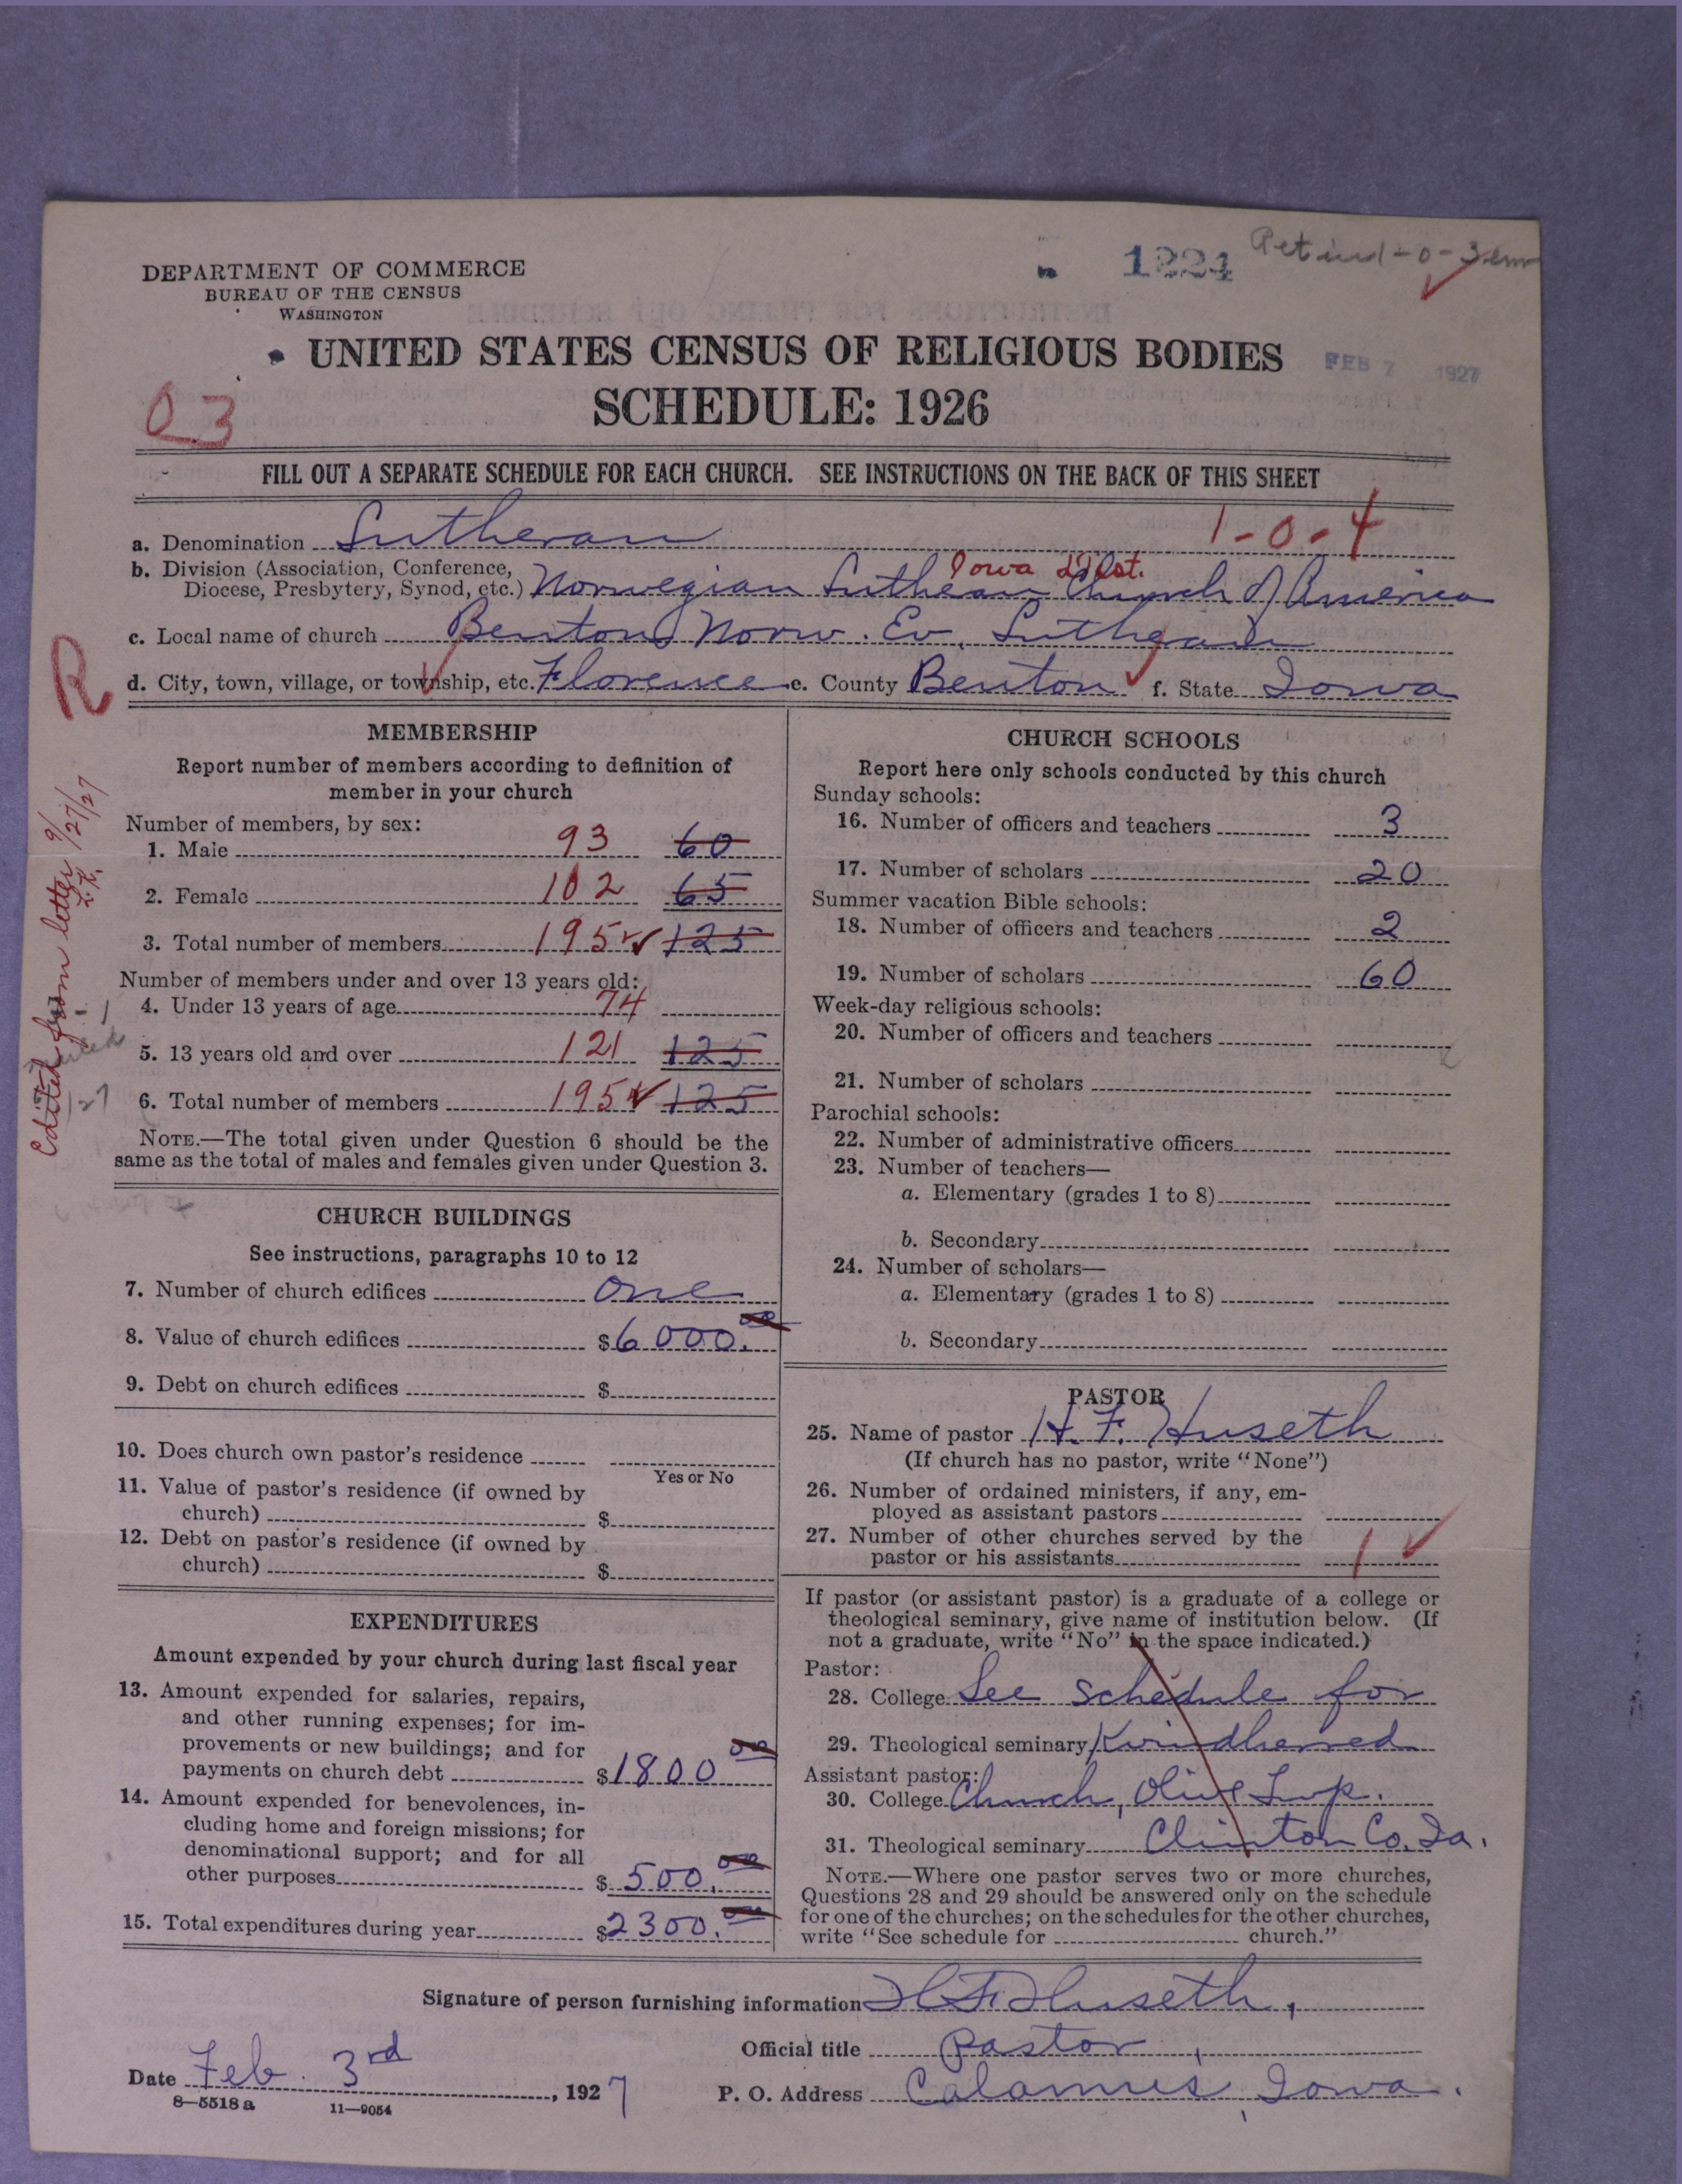 DEPARTMENT OF COMMERCE
BUREAU OF THE CENSUS
WASHINGTON
1224
UNITED STATES CENSUS OF RELIGIOUS BODIES
FEB 7 1927
SCHEDULE: 1926
03
FILL OUT A SEPARATE SCHEDULE FOR EACH CHURCH. SEE INSTRUCTIONS ON THE BACK OF THIS SHEET
1-0-4
a. Denomination Lutheran
Iowa Dist.
b. Division (Association, Conference,
Diocese, Presbytery, Synod, etc.) Norwegian Lutheran Church of America
c. Local name of church Benton Norw. Ev. Lutheran
d. City, town, village, or township, etc. Florence e. County Benton f. State Iowa
R
Edited from letter 9/27/27
L.K.
MEMBERSHIP
Report number of members according to definition of
member in your church
Number of members, by sex:
1. Male 93 60
2. Female 102 65
3. Total number of members 195 125
Number of members under and over 13 years old:
4. Under 13 years of age 74
5. 13 years old and over 121 125
6. Total number of members 195 125
NOTE.—The total given under Question 6 should be the
same as the total of males and females given under Question 3.
CHURCH BUILDINGS
See instructions, paragraphs 10 to 12
7. Number of church edifices one
8. Value of church edifices $6000.00
9. Debt on church edifices $
10. Does church own pastor's residence
Yes or No
11. Value of pastor's residence (if owned by
church) $
12. Debt on pastor's residence (if owned by
church) $
EXPENDITURES
Amount expended by your church during last fiscal year
13. Amount expended for salaries, repairs,
and other running expenses; for im-
provements or new buildings; and for
payments on church debt $1800 00
14. Amount expended for benevolences, in-
cluding home and foreign missions; for
denominational support; and for all
other purposes $500.00
15. Total expenditures during year $2300.00
CHURCH SCHOOLS
Report here only schools conducted by this church
Sunday schools:
16. Number of officers and teachers 3
17. Number of scholars 20
Summer vacation Bible schools:
18. Number of officers and teachers 2
19. Number of scholars 60
Week-day religious schools:
20. Number of officers and teachers
21. Number of scholars
Parochial schools:
22. Number of administrative officers
23. Number of teachers—
a. Elementary (grades 1 to 8)
b. Secondary
24. Number of scholars—
a. Elementary (grades 1 to 8)
b. Secondary
PASTOR
25. Name of pastor H. F. Huseth
(If church has no pastor, write "None")
26. Number of ordained ministers, if any, em-
ployed as assistant pastors
27. Number of other churches served by the
pastor or his assistants 1
If pastor (or assistant pastor) is a graduate of a college or
theological seminary, give name of institution below. (If
not a graduate, write "No" in the space indicated.)
Pastor:
28. College See schedule for
29. Theological seminary Kvindherred
Assistant pastor:
30. College Church, Olive Twp.
31. Theological seminary Clinton Co. Ia.
NOTE.—Where one pastor serves two or more churches,
Questions 28 and 29 should be answered only on the schedule
for one of the churches; on the schedules for the other churches,
write "See schedule for church."
Signature of person furnishing information H F Huseth,
Official title Pastor,
Date Feb. 3rd, 1927
P. O. Address Calamus, Iowa.
8—5518 a 11—9054